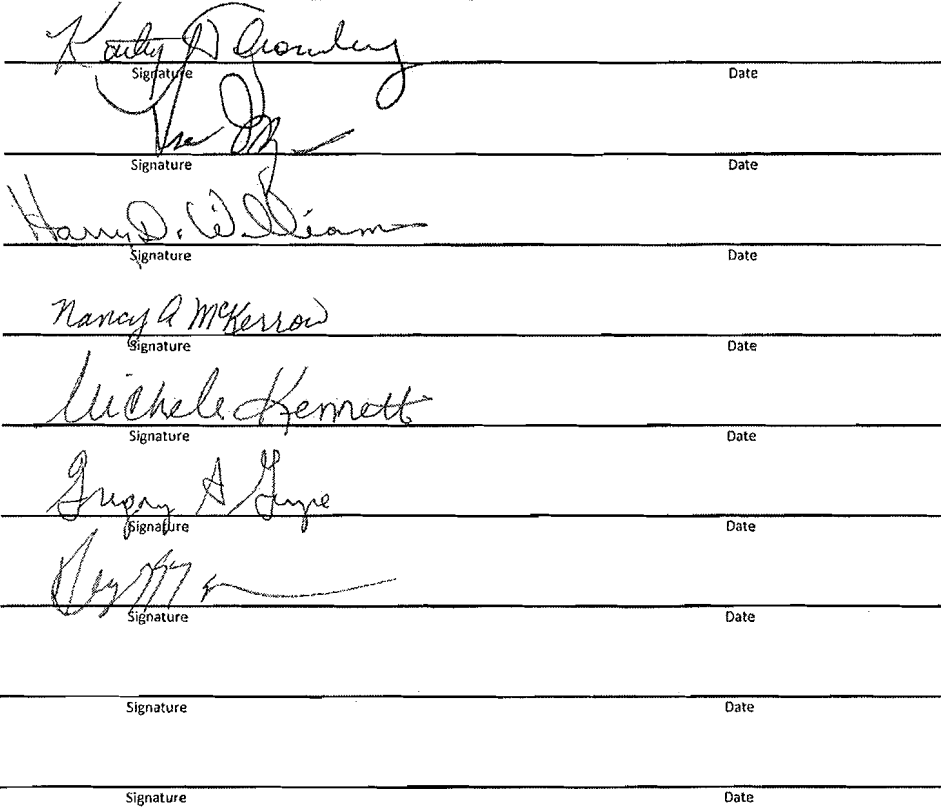 Kathy
Signature Date
Signature Date
Harry D. Williams
Signature Date
Nancy A McKerrow
Signature Date
Michele Kennett
Signature Date
Gregory A
Signature Date
Signature Date
Signature Date
Signature Date